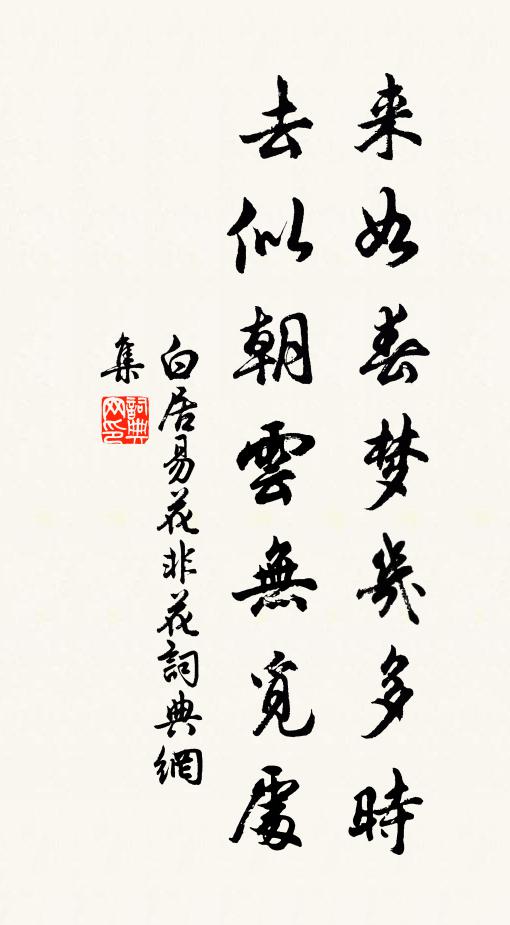 来如春梦幾多時
去似朝雲無覓處
白居易花非花詞典網
集
詞典網印